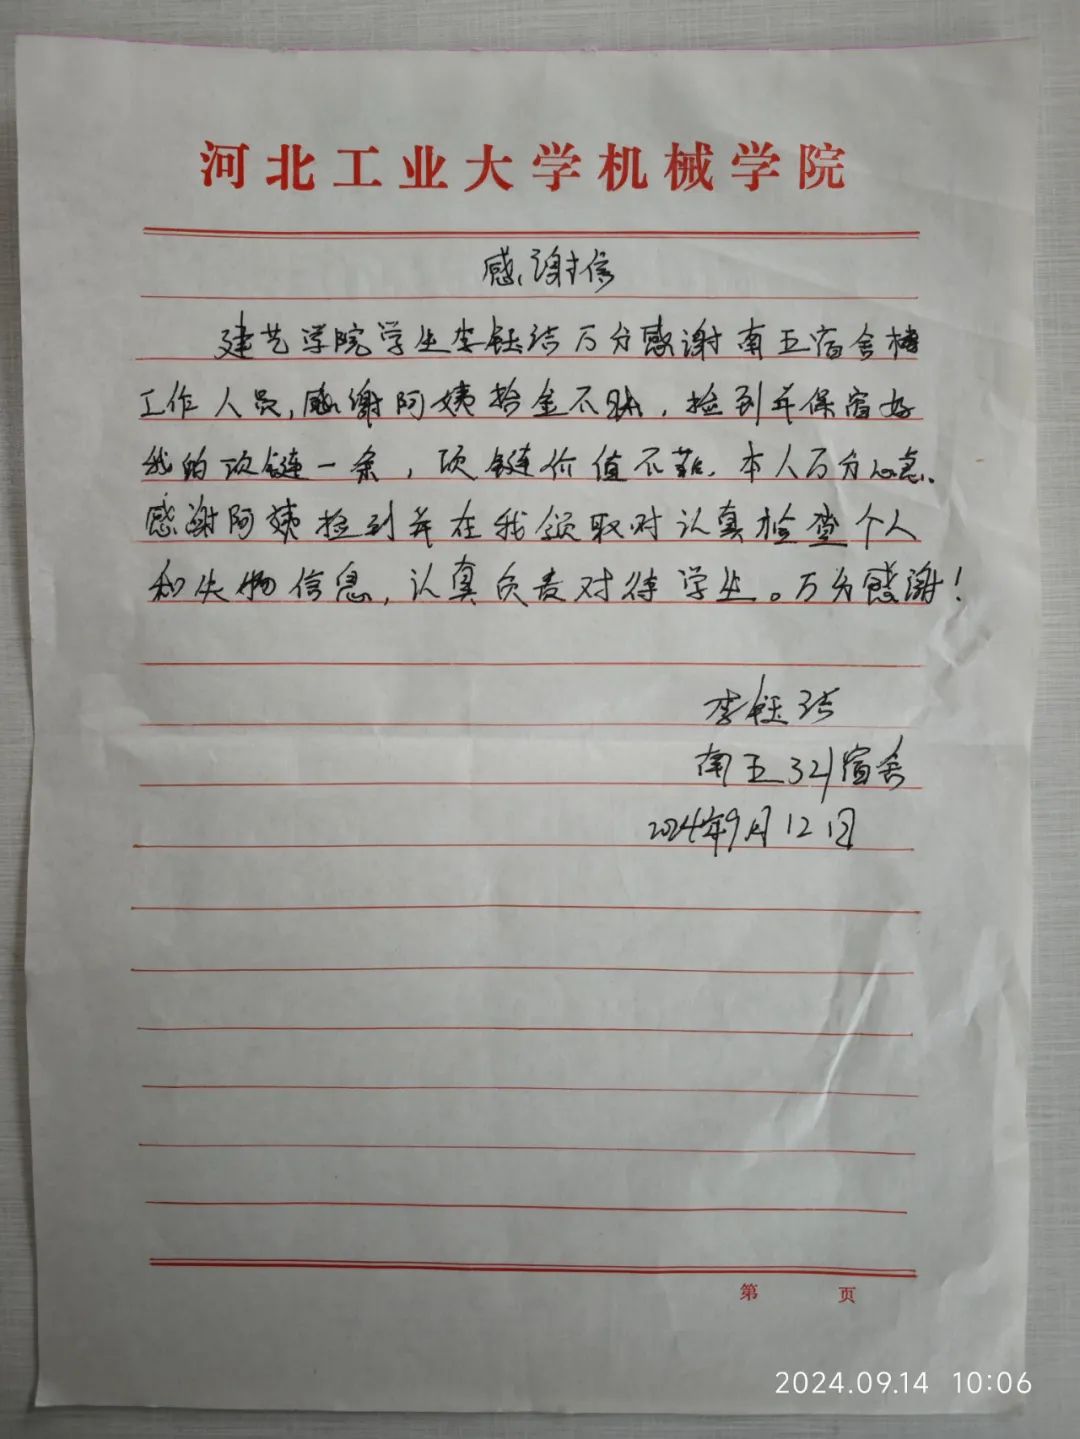 河北工业大学机械学院
感谢信
建艺学院学生李钰洁万分感谢南五宿舍楼
工作人员,感谢阿姨拾金不昧,捡到并保管好
我的项链一条,项链价值不菲,本人万分心急、
感谢阿姨捡到并在我领取时认真检查个人
和失物信息,认真负责对待学生。万分感谢!
李钰洁
南五321宿舍
2024年9月12日
第 页
2024.09.14 10:06